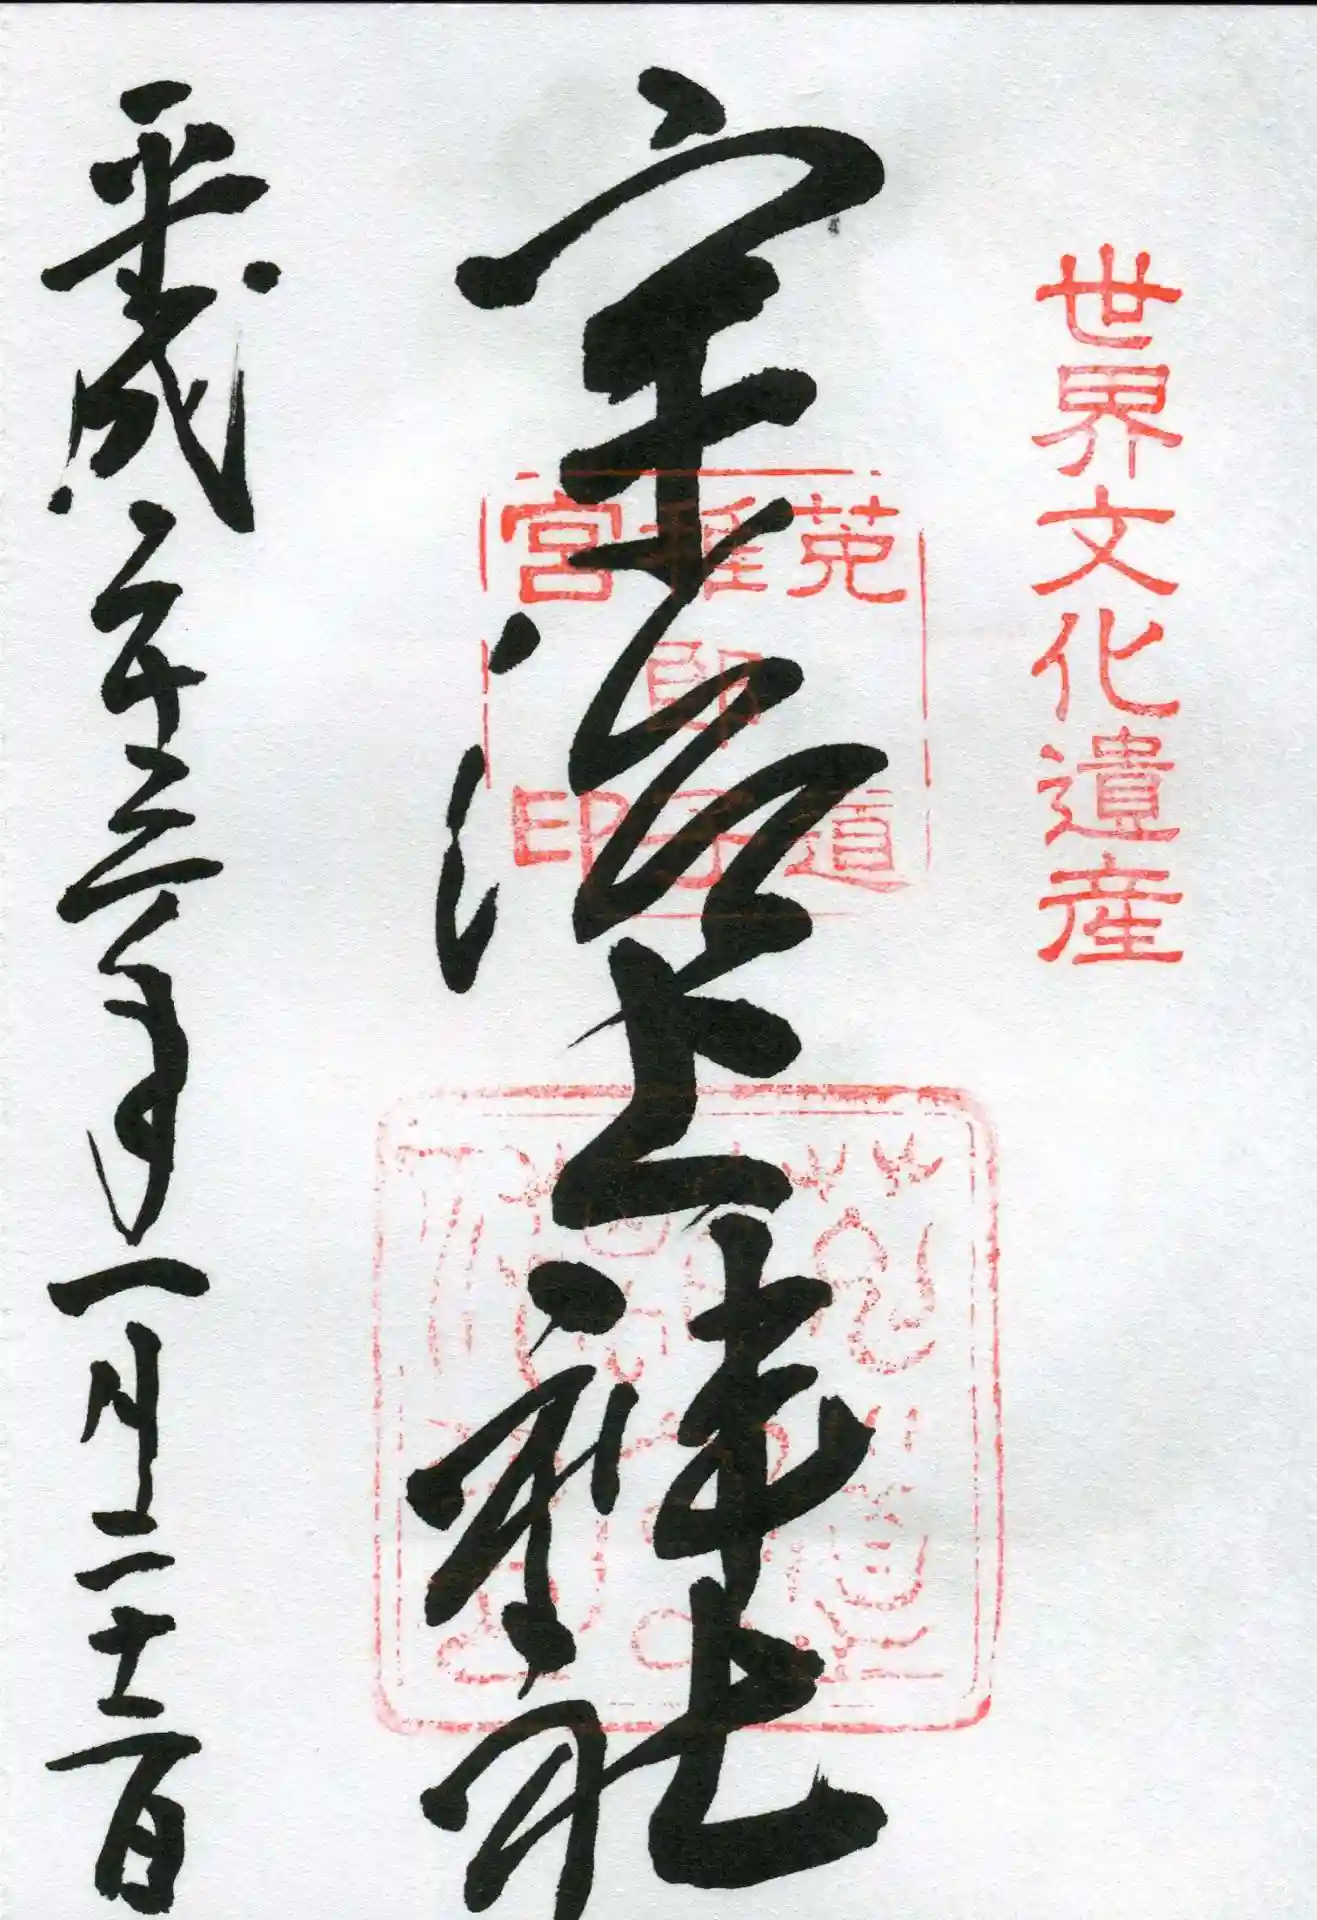 世界文化遺産
宇治上神社
菟道
稚郎子
宮印
平成二十三年一月二十二日